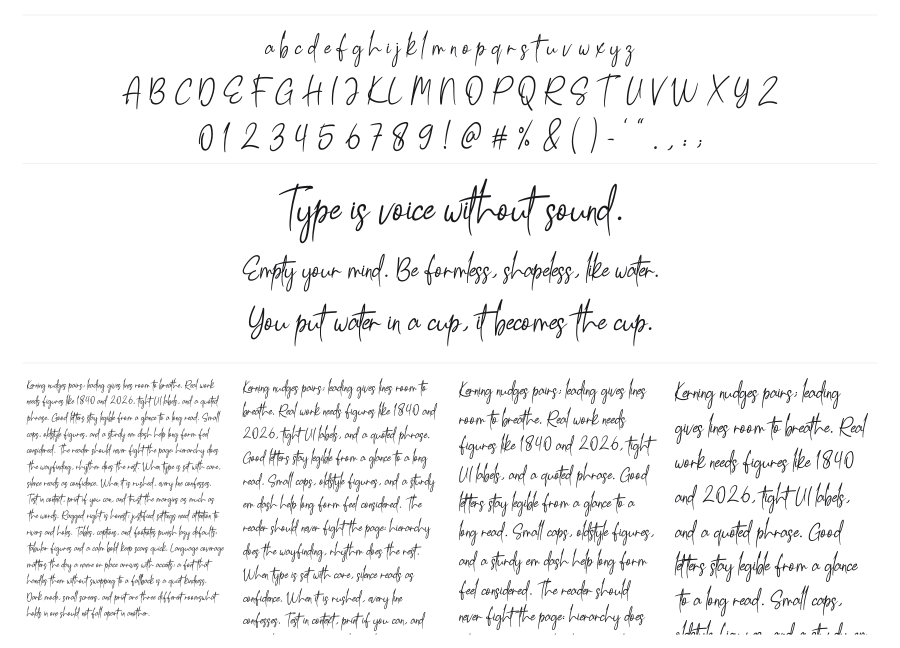 a b c d e f g h i j k l m n o p q r s t u v w x y z
A B C D E F G H I J K L M N O P Q R S T U V W X Y Z
0 1 2 3 4 5 6 7 8 9 ! @ # % & ( ) - ' " . , : ;
Type is voice without sound.
Empty your mind. Be formless, shapeless, like water.
You put water in a cup, it becomes the cup.
Kerning nudges pairs; leading gives lines room to breathe. Real work
needs figures like 1840 and 2026, tight UI labels, and a quoted
phrase. Good letters stay legible from a glance to a long read. Small
caps, oldstyle figures, and a sturdy em dash help long form feel
considered. The reader should never fight the page: hierarchy does
the wayfinding, rhythm does the rest. When type is set with care,
silence reads as confidence. When it is rushed, every line confesses.
Test in context, print if you can, and trust the margins as much as
the words. Ragged right is honest; justified settings need attention to
rivers and holes. Tables, captions, and footnotes punish lazy defaults;
tabular figures and a calm bold keep scans quick. Language coverage
matters the day a name or place arrives with accents; a font that
handles them without swapping to a fallback is a quiet kindness.
Dark mode, small screens, and print are three different rooms; what
holds in one should not fall apart in another.
Kerning nudges pairs; leading gives lines room to
breathe. Real work needs figures like 1840 and
2026, tight UI labels, and a quoted phrase.
Good letters stay legible from a glance to a long
read. Small caps, oldstyle figures, and a sturdy
em dash help long form feel considered. The
reader should never fight the page: hierarchy
does the wayfinding, rhythm does the rest.
When type is set with care, silence reads as
confidence. When it is rushed, every line
confesses. Test in context, print if you can, and
Kerning nudges pairs; leading gives lines
room to breathe. Real work needs
figures like 1840 and 2026, tight
UI labels, and a quoted phrase. Good
letters stay legible from a glance to a
long read. Small caps, oldstyle figures,
and a sturdy em dash help long form
feel considered. The reader should
never fight the page: hierarchy does
Kerning nudges pairs; leading
gives lines room to breathe. Real
work needs figures like 1840
and 2026, tight UI labels,
and a quoted phrase. Good
letters stay legible from a glance
to a long read. Small caps,
oldstyle figures, and a sturdy em